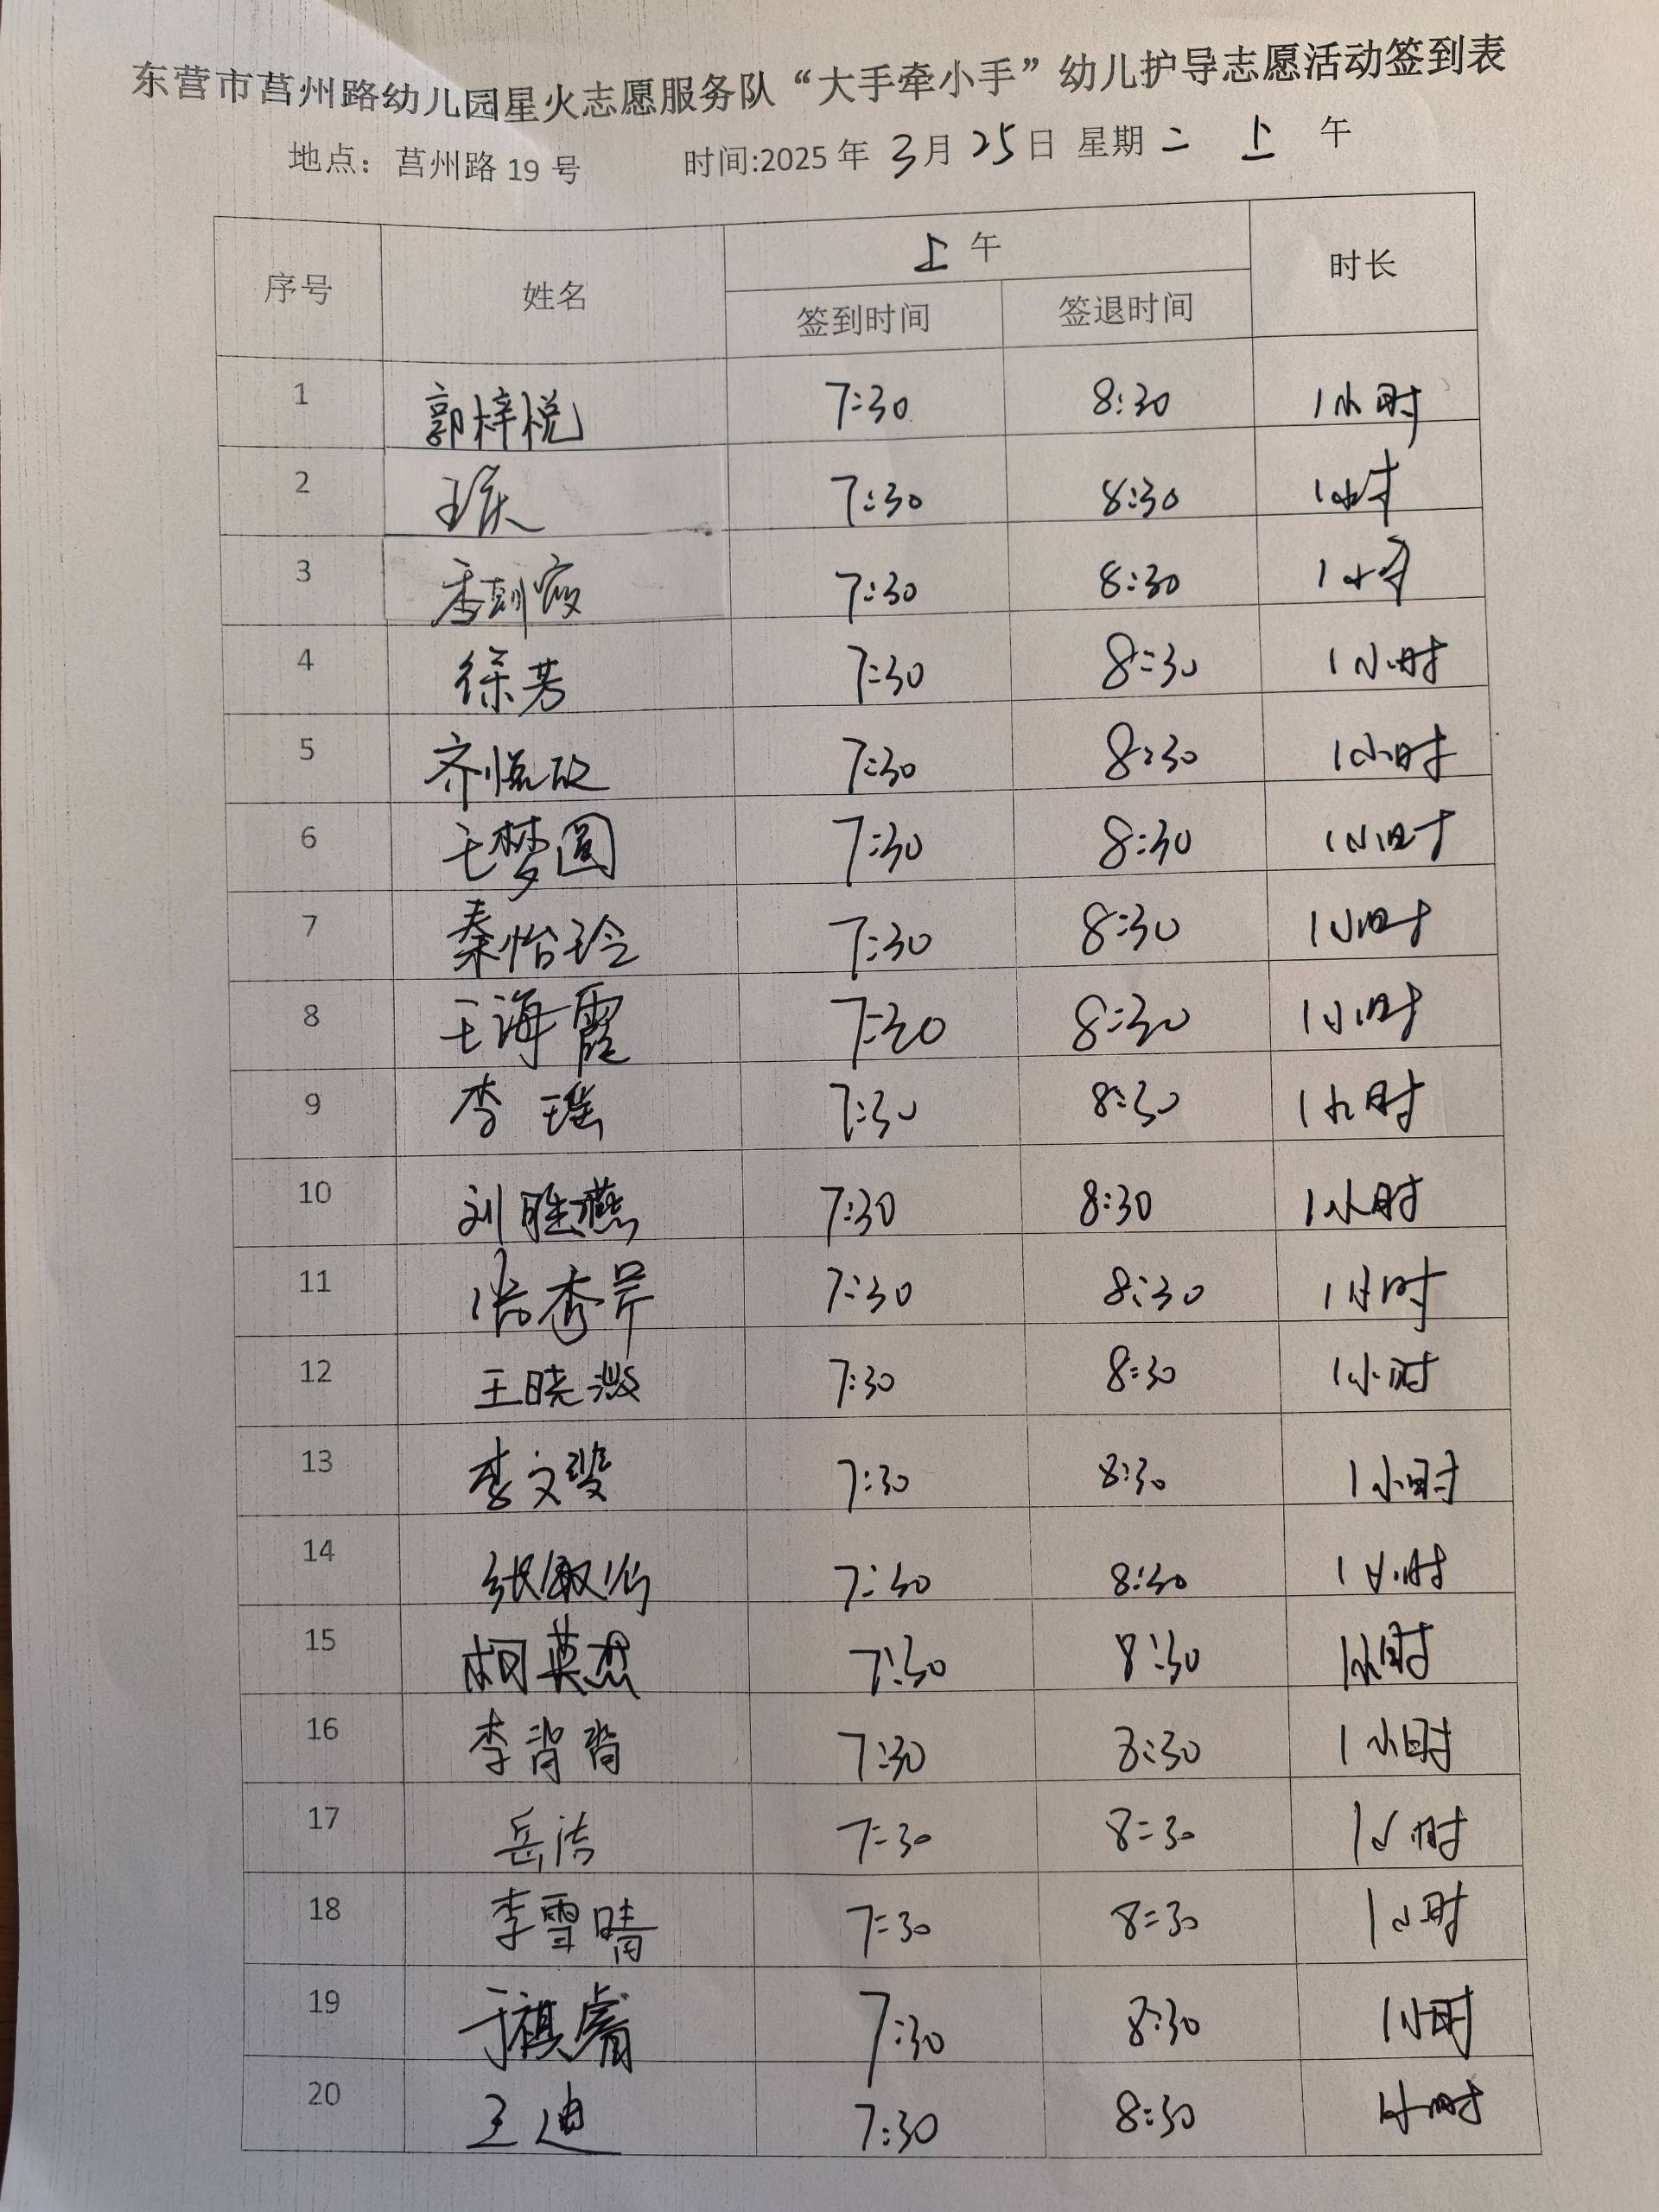 东营市莒州路幼儿园星火志愿服务队“大手牵小手”幼儿护导志愿活动签到表
地点：莒州路19号 时间:2025年3月25日 星期二 上午
序号 姓名 上午 时长
签到时间 签退时间
1 郭梓悦 7:30 8:30 1小时
2 王 7:30 8:30 1小时
3 7:30 8:30 1小时
4 徐芳 7:30 8:30 1小时
5 齐悦 7:30 8:30 1小时
6 王梦圆 7:30 8:30 1小时
7 秦怡玲 7:30 8:30 1小时
8 王海霞 7:30 8:30 1小时
9 李瑶 7:30 8:30 1小时
10 刘胜燕 7:30 8:30 1小时
11 张秀芹 7:30 8:30 1小时
12 王晓 7:30 8:30 1小时
13 李文 7:30 8:30 1小时
14 张 7:30 8:30 1小时
15 7:30 8:30 1小时
16 李 7:30 8:30 1小时
17 岳洁 7:30 8:30 1小时
18 李雪晴 7:30 8:30 1小时
19 于祺睿 7:30 8:30 1小时
20 王迪 7:30 8:30 1小时